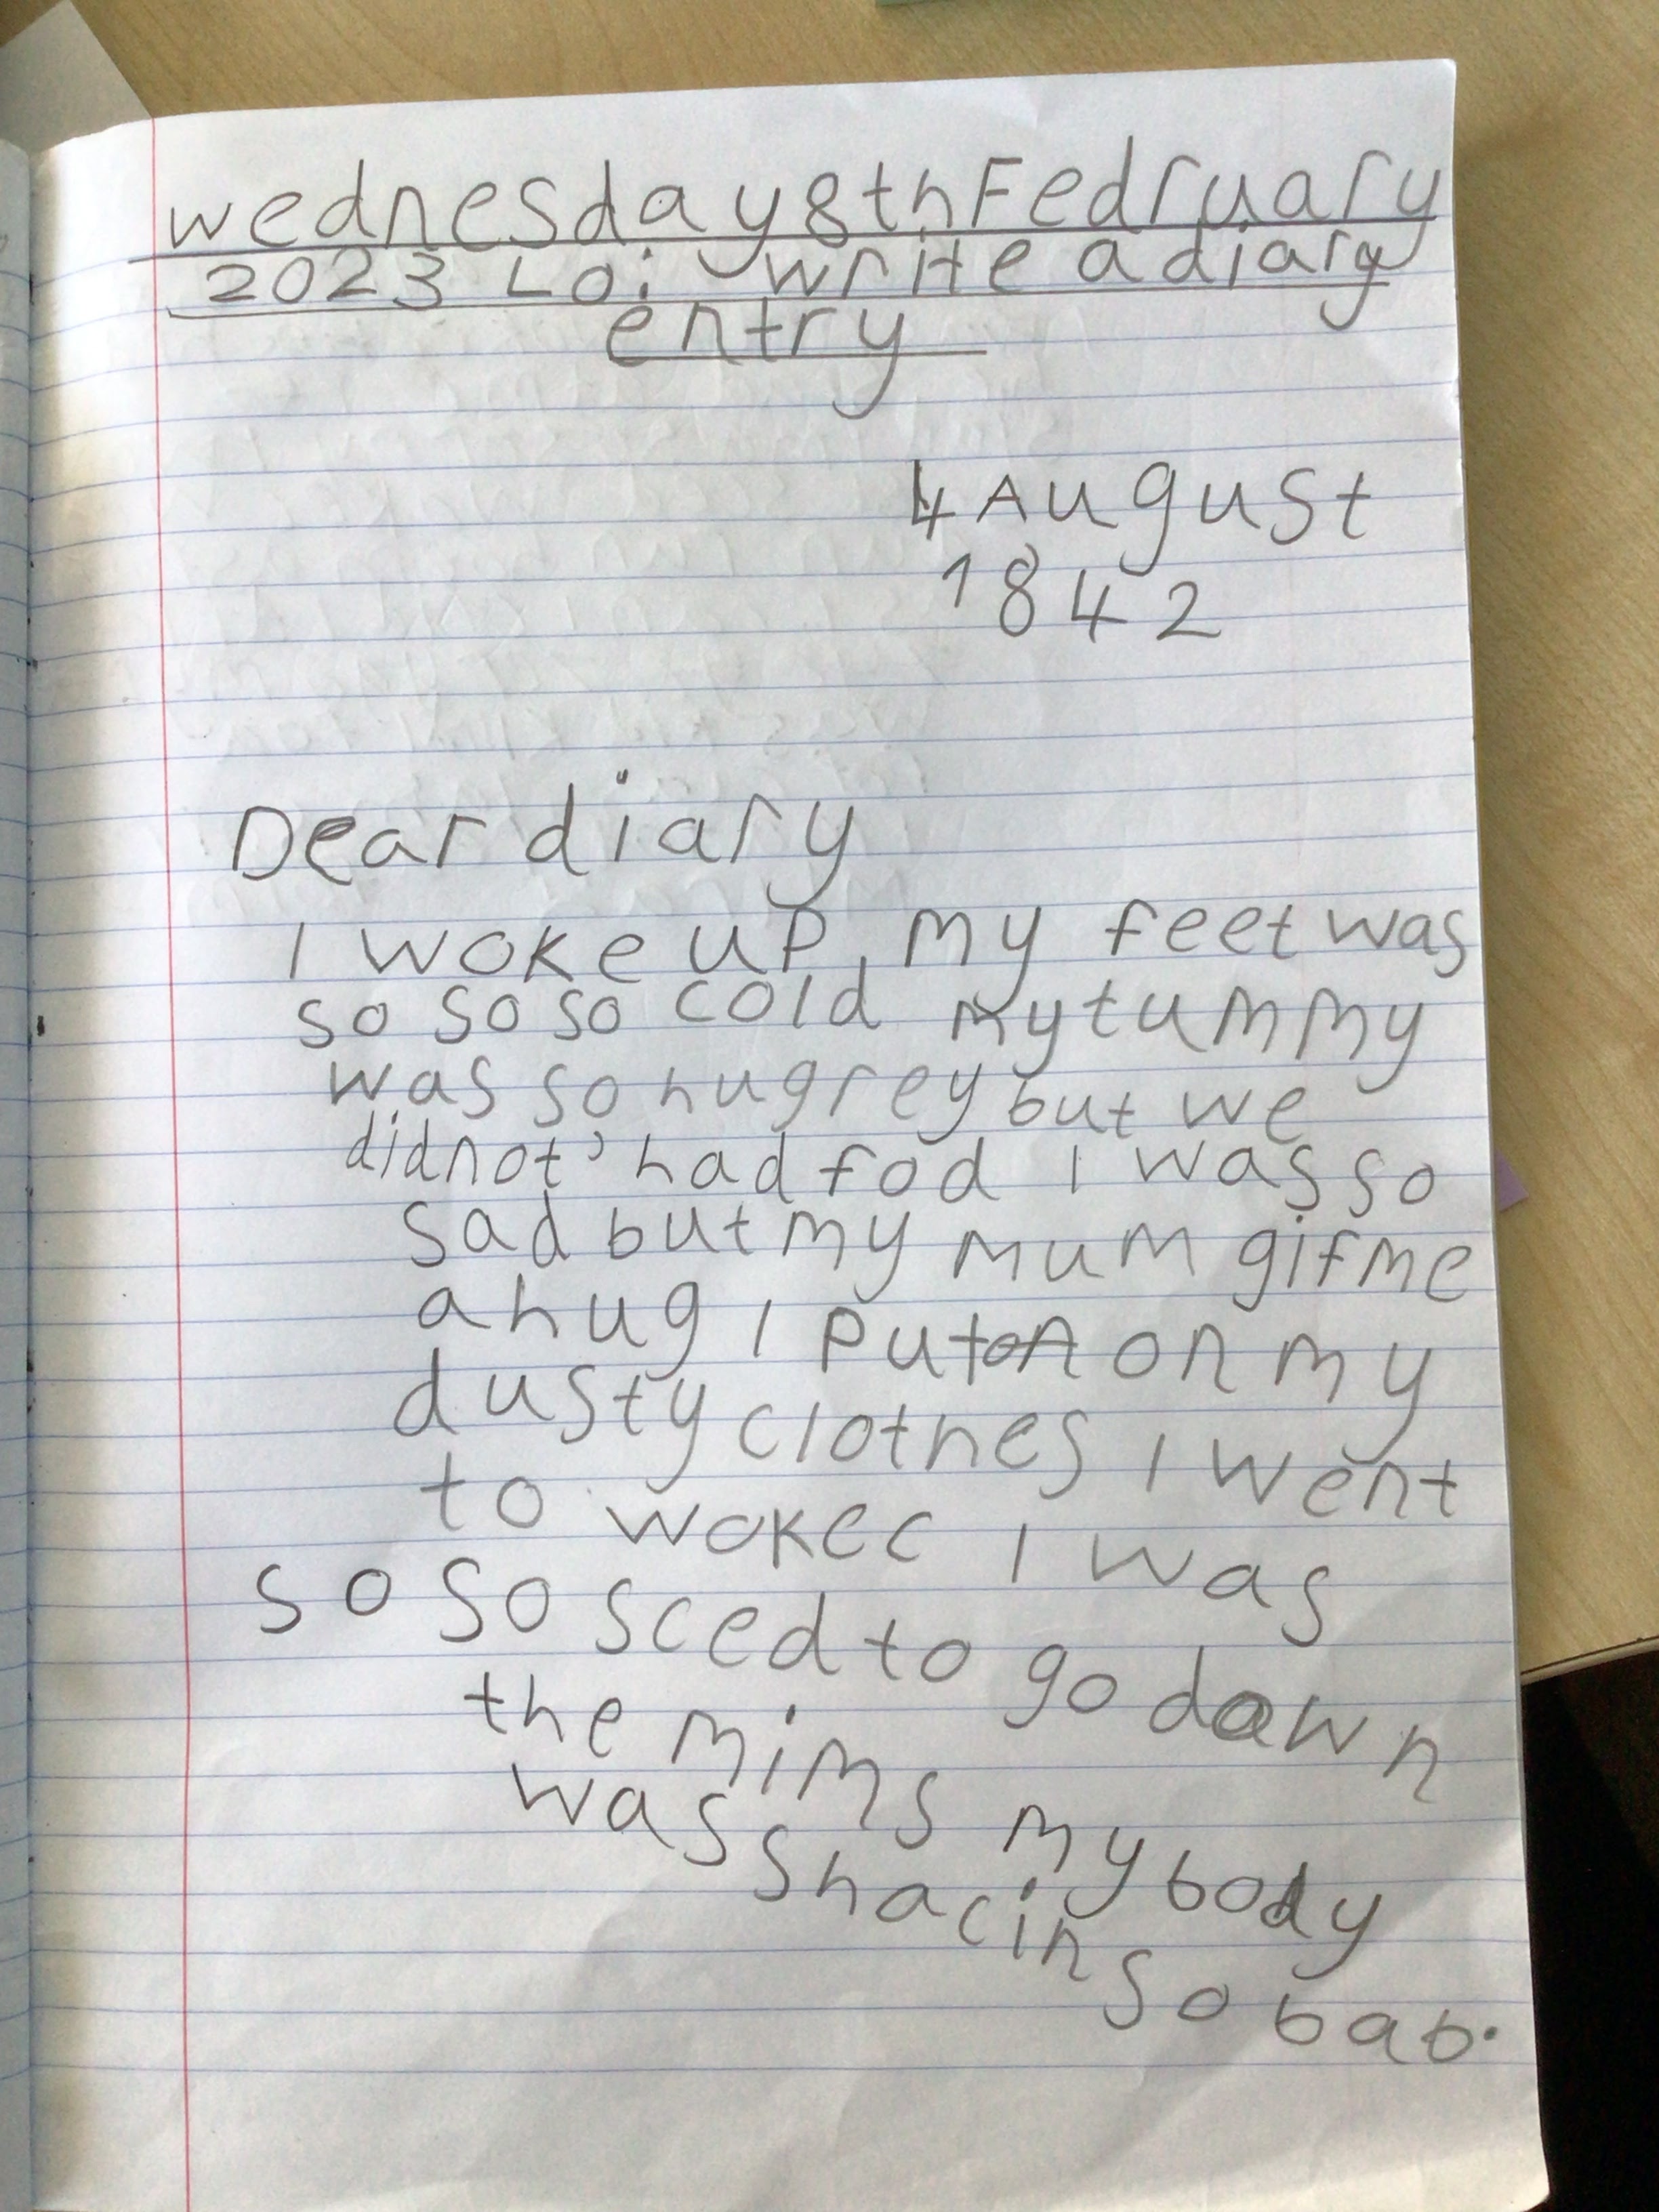 wednesday 8th Fedruary
2023 Lo: write a diary
entry
4 August
1842
Dear diary
I woke up, my feet was
so so so cold my tummy
was so hugrey but we
didnot' had fod I was so
sad but my mum gif me
a hug I put on on my
dusty clothes I went
to wokec I was
so so sced to go dawn
the mims my body
was shacin so bab.